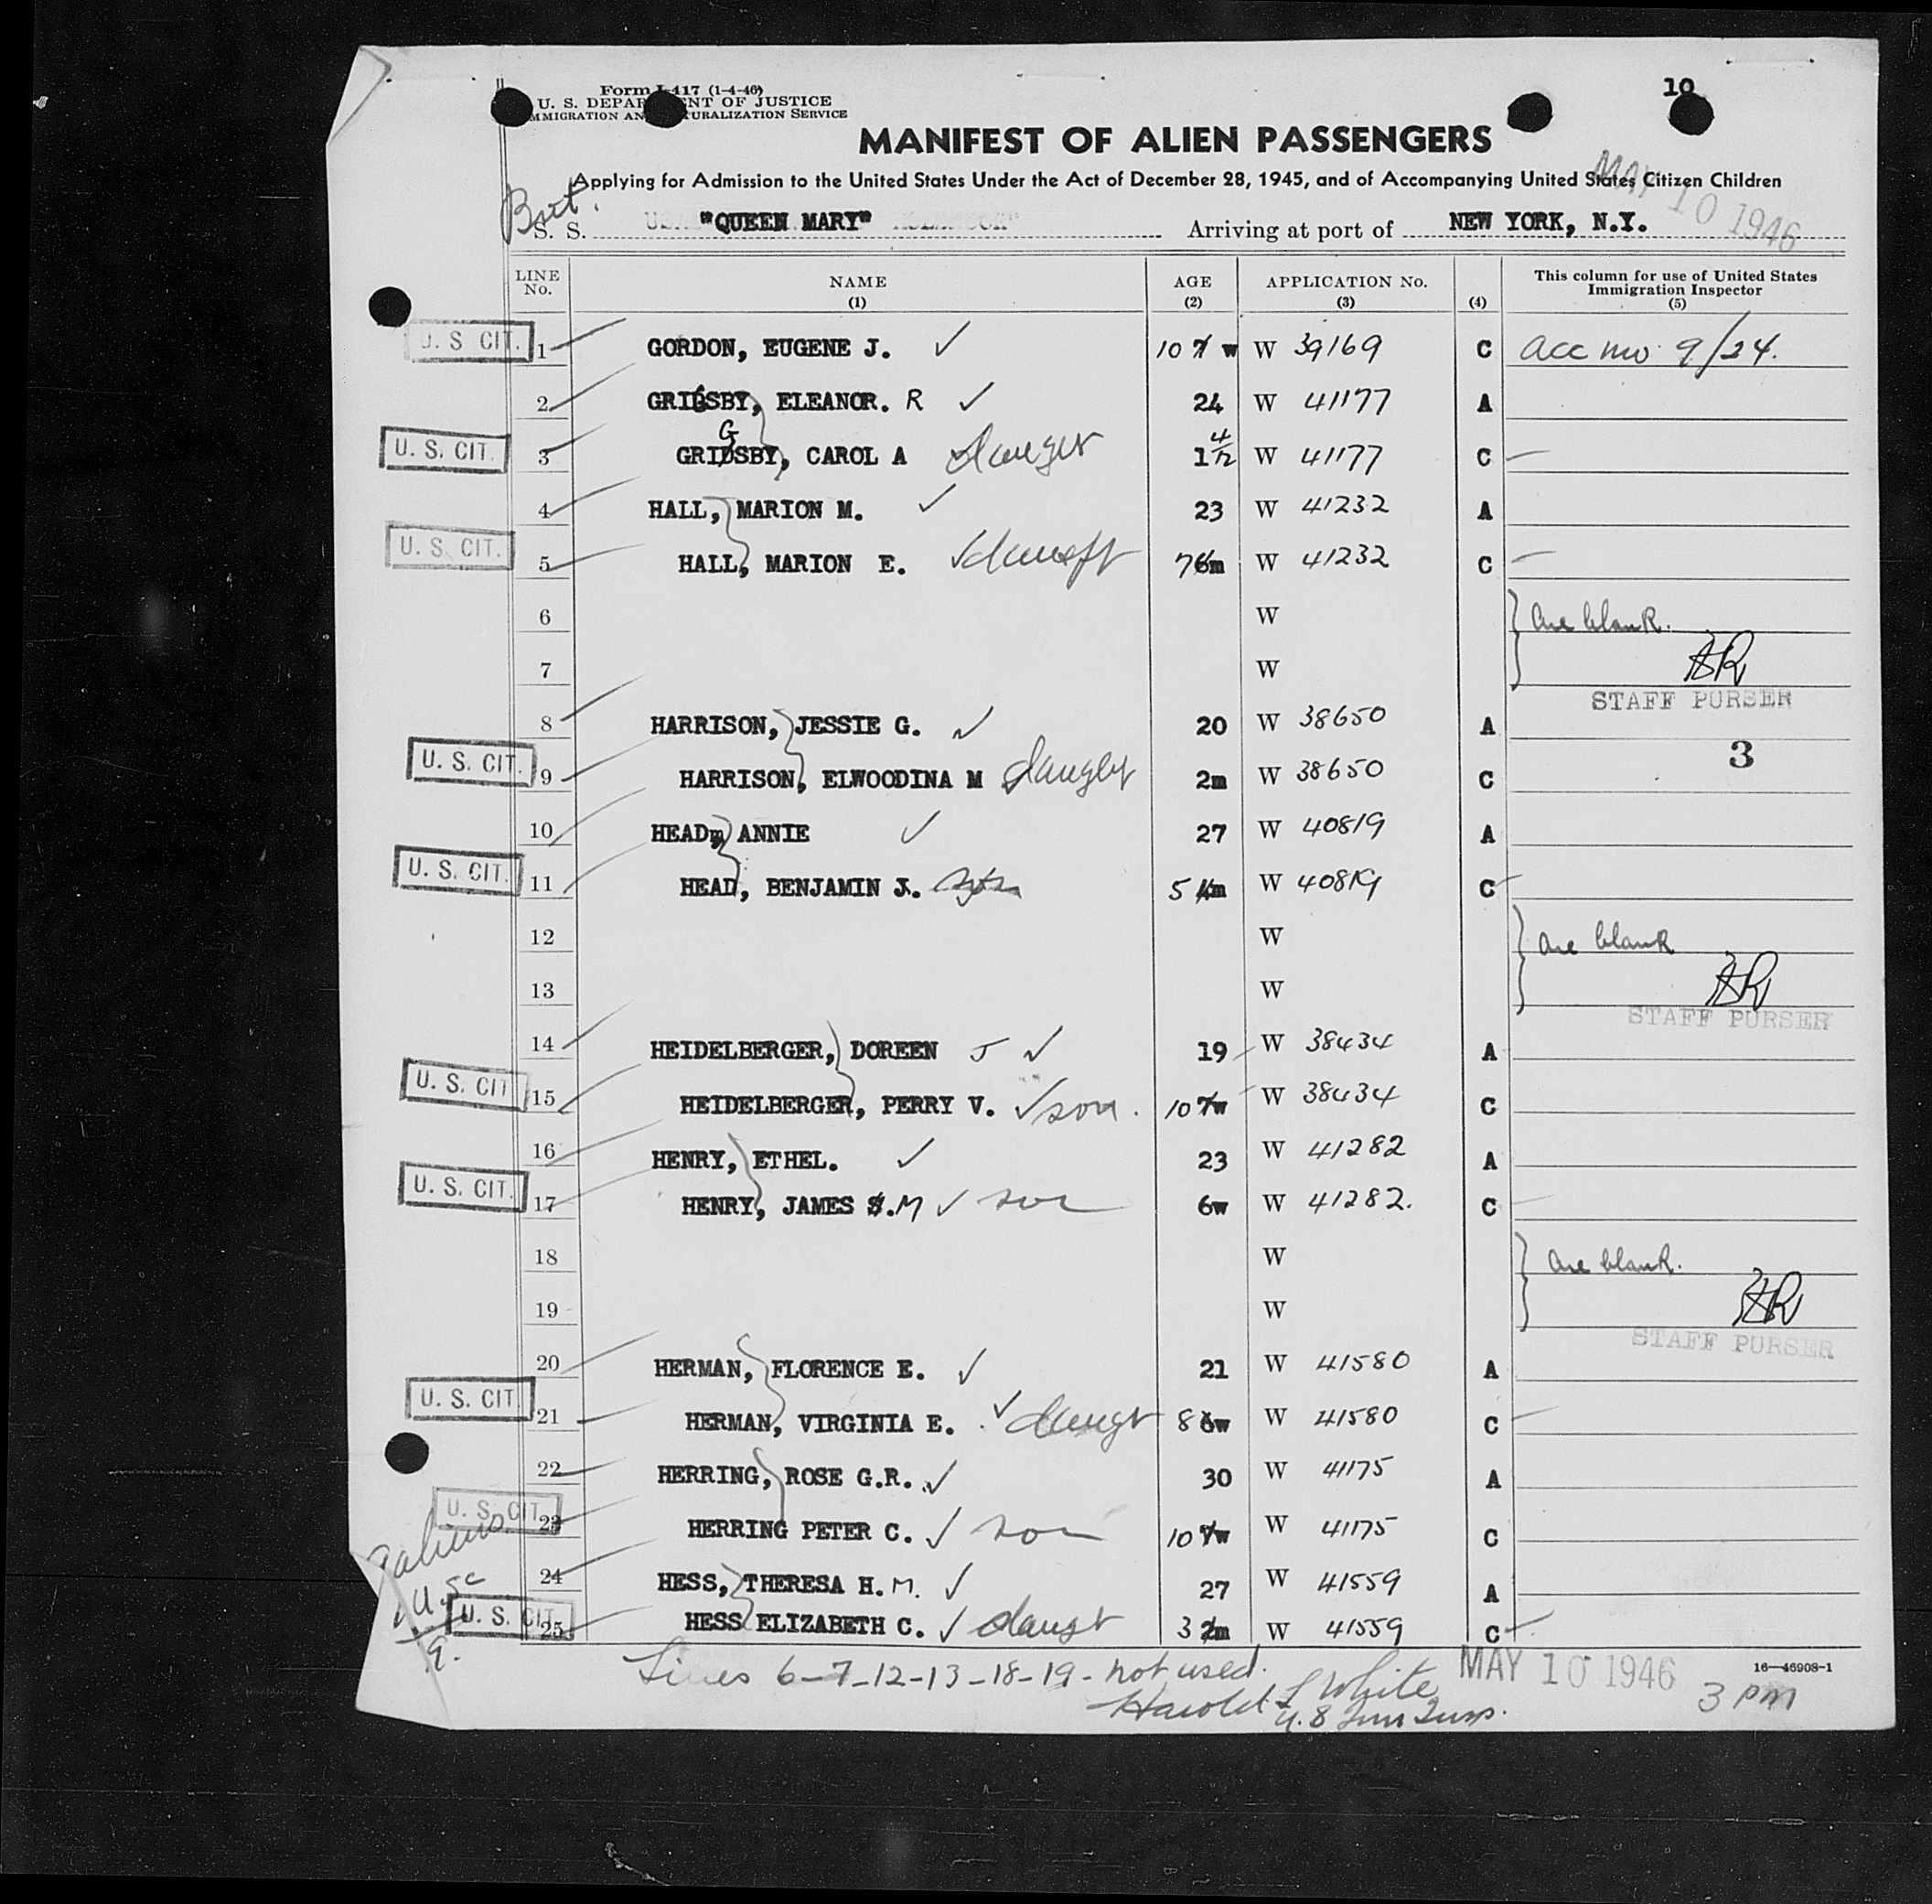 10
Form I-417 (1-4-46)
U. S. DEPARTMENT OF JUSTICE
IMMIGRATION AND NATURALIZATION SERVICE
MANIFEST OF ALIEN PASSENGERS
Applying for Admission to the United States Under the Act of December 28, 1945, and of Accompanying United States Citizen Children
MAY 10 1946
Brit.
S. S. "QUEEN MARY" Arriving at port of NEW YORK, N.Y.
LINE No. NAME (1) AGE (2) APPLICATION No. (3) (4) This column for use of United States Immigration Inspector (5)
U. S. CIT. 1 GORDON, EUGENE J. ✓ 10 w W 39169 C acc mo 9/24.
2 GRIGSBY, ELEANOR. R ✓ 24 W 41177 A
U. S. CIT. 3 GRIGSBY, CAROL A 1 4/12 W 41177 C
4 HALL, MARION M. ✓ 23 W 41232 A
U. S. CIT. 5 HALL, MARION E. ✓ 7m W 41232 C
6 W are blank.
7 W
STAFF PURSER
8 HARRISON, JESSIE G. ✓ 20 W 38650 A
3
U. S. CIT. 9 HARRISON, ELWOODINA M 2m W 38650 C
10 HEAD, ANNIE ✓ 27 W 40819 A
U. S. CIT. 11 HEAD, BENJAMIN J. 5 m W 40819 C
12 W are blank
13 W
STAFF PURSER
14 HEIDELBERGER, DOREEN J ✓ 19 W 38434 A
U. S. CIT 15 HEIDELBERGER, PERRY V. ✓ son. 10 w W 38434 C
16 HENRY, ETHEL. ✓ 23 W 41282 A
U. S. CIT. 17 HENRY, JAMES M ✓ son 6w W 41282. C
18 W are blank.
19 W
STAFF PURSER
20 HERMAN, FLORENCE E. ✓ 21 W 41580 A
U. S. CIT 21 HERMAN, VIRGINIA E. ✓ 8 w W 41580 C
22 HERRING, ROSE G.R. ✓ 30 W 41175 A
U. S. CIT. 23 HERRING PETER C. ✓ son 10 w W 41175 C
24 HESS, THERESA H. M. ✓ 27 W 41559 A
U. S. CIT. 25 HESS ELIZABETH C. ✓ 3 m W 41559 C
Lines 6-7-12-13-18-19- not used. MAY 10 1946 16—46908-1
Harold L White 3 pm
U. S Imm Insp.